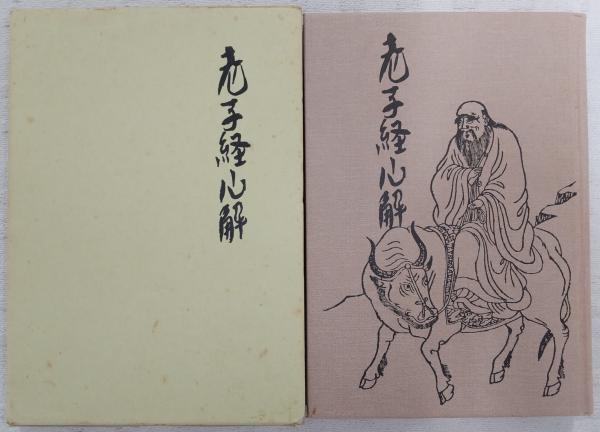 老子経心解
老子経心解